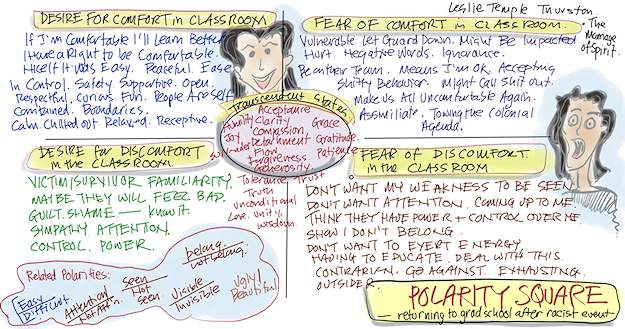 DESIRE FOR COMFORT in CLASSROOM
If I'm Comfortable I'll Learn Better
I Have a Right to be Comfortable.
It was Easy. Peaceful. Ease
In Control. Safety Supportive. Open.
Respectful. Curious. Fun. People Are Self
Contained. Boundaries.
Calm. Chilled out. Relaxed. Receptive.
Leslie Temple Thurston
• The Marriage of Spirit.
FEAR OF COMFORT in CLASSROOM.
Vulnerable. Let Guard Down. Might Be Impacted
Hurt. Negative Words. Ignorance.
Be on their Team. Means I'm OK, Accepting
Shitty Behavior. Might Call Shit out.
Make us All Uncomfortable Again.
Assimilate. Towing the Colonial
Agenda.
Transcendent States
Acceptance
Humility Clarity Grace
Joy Compassion,
Surrender Detachment Gratitude.
Flow Patience
Forgiveness
Generosity
Tolerance Trust
Truth
Unconditional
Love. Unity.
Wisdom.
DESIRE for DISCOMFORT
in the CLASSROOM.
VICTIM/SURVIVOR FAMILIARITY.
MAYBE THEY WILL FEEL BAD.
GUILT. SHAME — know it
SYMPATHY ATTENTION.
CONTROL. POWER.
FEAR OF DISCOMFORT
in the CLASSROOM.
DON'T WANT MY WEAKNESS TO BE SEEN
DON'T WANT ATTENTION. COMING UP TO ME.
THINK THEY HAVE POWER + CONTROL OVER ME.
SHOW I DON'T BELONG.
DON'T WANT TO EXERT ENERGY.
HAVING TO EDUCATE. DEAL WITH THIS.
CONTRARIAN. GO AGAINST. EXHAUSTING.
OUTSIDER.
Related Polarities:
Easy
Difficult
Attention
Not Attn.
Seen
Not seen
belong.
not belong.
Visible
Invisible
Ugly
Beautiful
POLARITY SQUARE
— returning to grad school after racist event